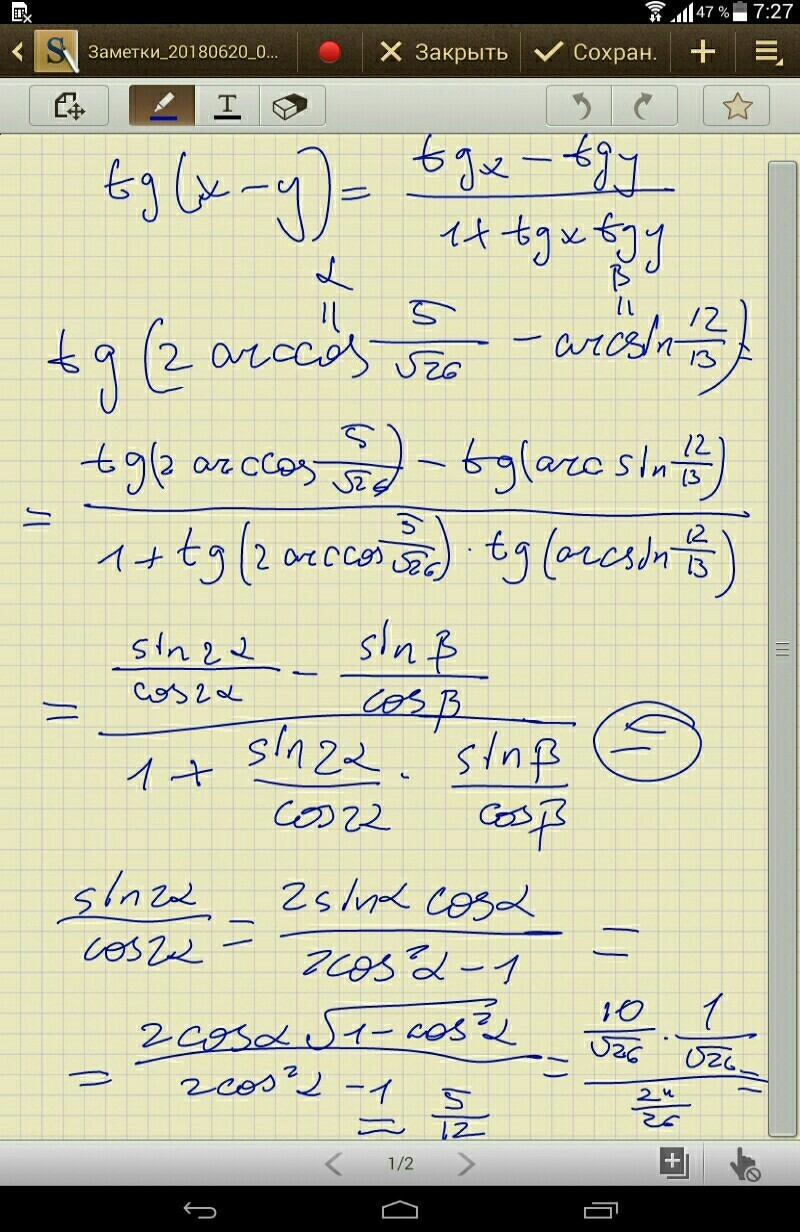 47 % 7:27
Заметки_20180620_0... Закрыть Сохран.
T
tg(x-y) = (tgx - tgy)/(1+tgx tgy)
α β
= =
tg(2 arccos 5/√26 - arcsin 12/13) =
= (tg(2 arccos 5/√26) - tg(arcsin 12/13))/(1+tg(2 arccos 5/√26) · tg(arcsin 12/13))
= (sin2α/cos2α - sinβ/cosβ)/(1+ sin2α/cos2α · sinβ/cosβ) =
sin2α/cos2α = 2sinα cosα/(2cos²α-1) =
= 2cosα √(1-cos²α)/(2cos²α-1) = (10/√26 · 1/√26)/(24/26) =
= 5/12
1/2